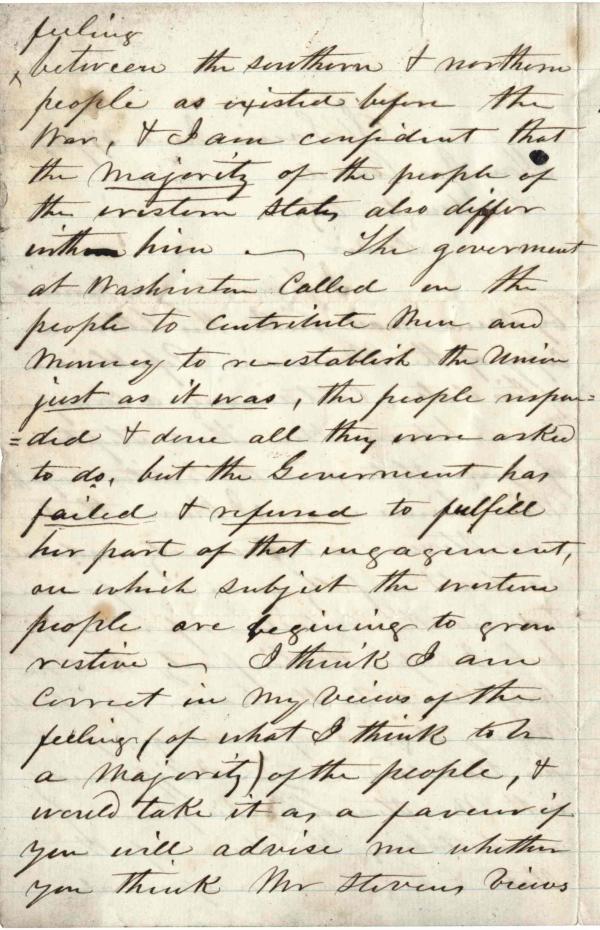 feeling
^ between the southern & northern
people as existed before the
War, & I am confident that
the majority of the people of
the western States also differ
with him — The goverment
at Washinton Called on the
people to contribute Men and
Monney to re-establish the Union
just as it was, the people respon=
=ded & done all they were asked
to do, but the Goverment has
failed & refused to fulfill
her part of that ingagement,
on which subject the western
people are begining to grow
restive — I think I am
Correct in My Views of the
feeling (of what I think to be
a Majority) of the people, &
would take it as a favour if
you will advise me whether
you think Mr Stevens Views